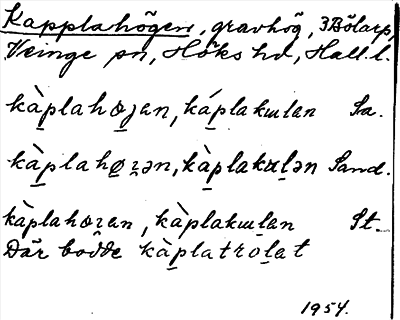 Kapplahögen, gravhög, 3 Bölarp,
Veinge sn, Höks hd, Hall. l.
kàplahøȷen, káplakɯlen Sa.
kàplahøʒən, kàplakʉlən Sand.
kàplahøʒen, kàplakɯlen St.
Där bodde kàplatrolat
1954.